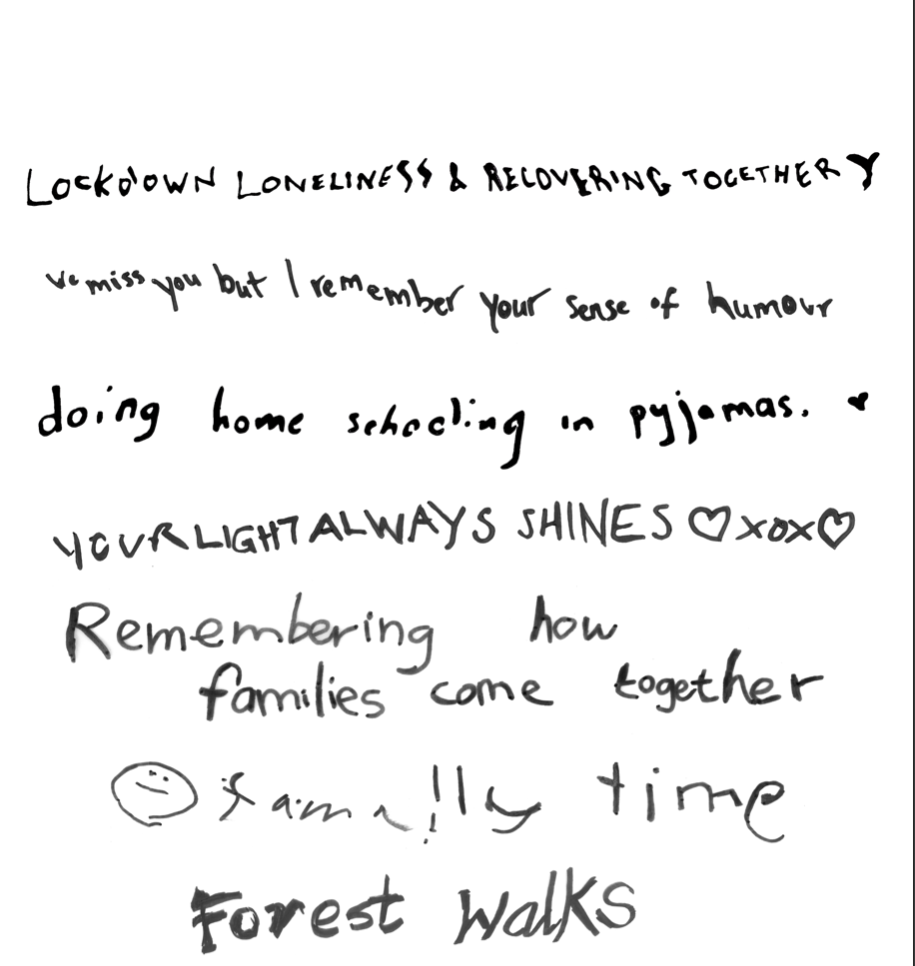 LOCKDOWN LONELINESS & RECOVERING TOGETHER
we miss you but I remember your sense of humour
doing home schooling in pyjamas. ♥
YOUR LIGHT ALWAYS SHINES ♡xox♡
Remembering how
families come together
time
Forest walks